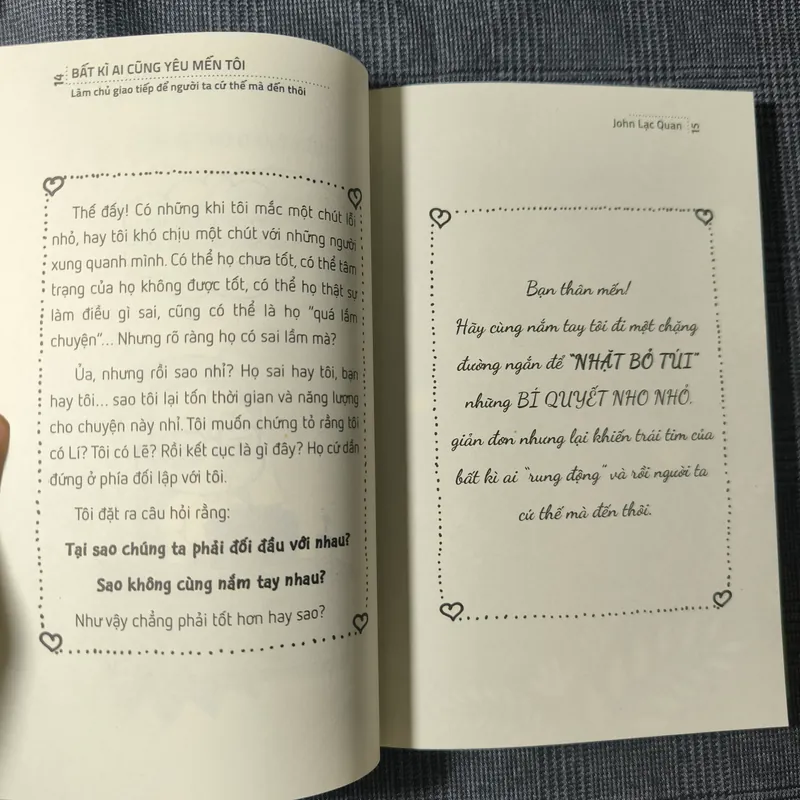 14
BẤT KÌ AI CŨNG YÊU MẾN TÔI
Làm chủ giao tiếp để người ta cứ thế mà đến thôi
Thế đấy! Có những khi tôi mắc một chút lỗi
nhỏ, hay tôi khó chịu một chút với những người
xung quanh mình. Có thể họ chưa tốt, có thể tâm
trạng của họ không được tốt, có thể họ thật sự
làm điều gì sai, cũng có thể là họ “quá lắm
chuyện”... Nhưng rõ ràng họ có sai lầm mà?
Ủa, nhưng rồi sao nhỉ? Họ sai hay tôi, bạn
hay tôi... sao tôi lại tốn thời gian và năng lượng
cho chuyện này nhỉ. Tôi muốn chứng tỏ rằng tôi
có Lí? Tôi có Lẽ? Rồi kết cục là gì đây? Họ cứ dần
đứng ở phía đối lập với tôi.
Tôi đặt ra câu hỏi rằng:
Tại sao chúng ta phải đối đầu với nhau?
Sao không cùng nắm tay nhau?
Như vậy chẳng phải tốt hơn hay sao?
John Lạc Quan
15
Bạn thân mến!
Hãy cùng nắm tay tôi đi một chặng
đường ngắn để “NHẶT BỎ TÚI”
những BÍ QUYẾT NHO NHỎ,
giản đơn nhưng lại khiến trái tim của
bất kì ai “rung động” và rồi người ta
cứ thế mà đến thôi.